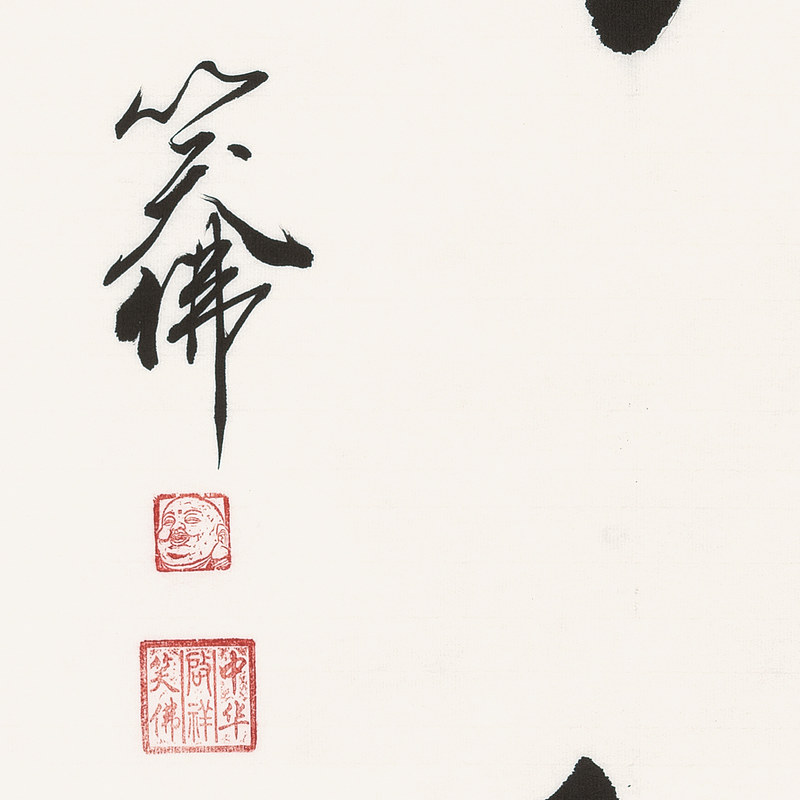 笑佛
中华
啟祥
笑佛